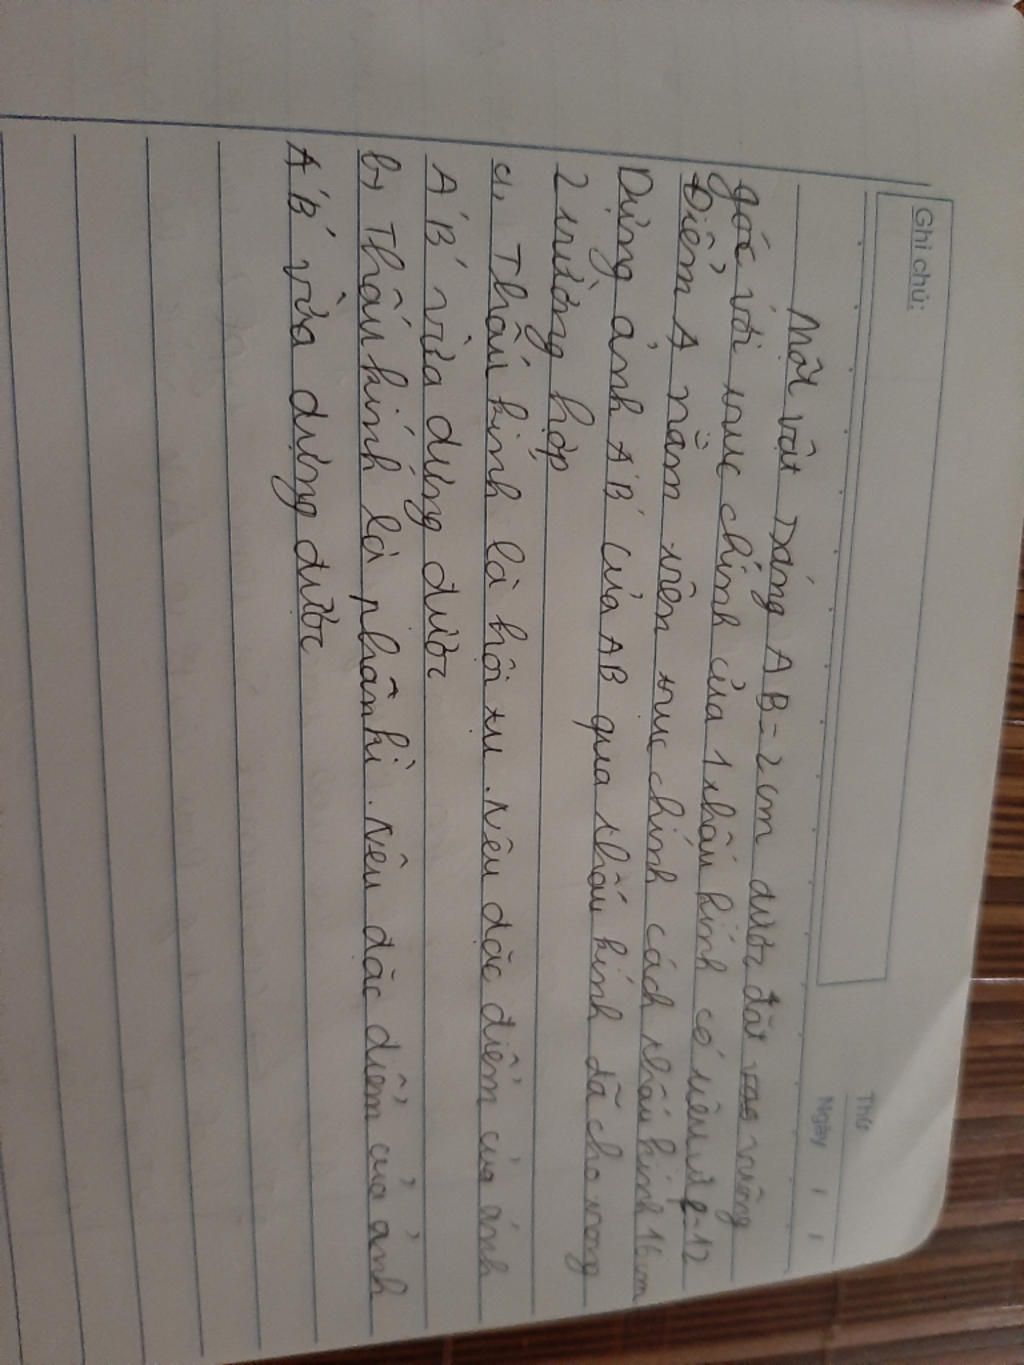 Ghi chú:
Thứ
Ngày / /
Một vật sáng AB = 2cm được đặt vuông
góc với trục chính của 1 thấu kính có tiêu cự f = 12
Điểm A nằm trên trục chính cách thấu kính 16cm
Dựng ảnh A'B' của AB qua thấu kính đã cho trong
2 trường hợp
a, Thấu kính là hội tụ. Nêu đặc điểm của ảnh
A'B' vừa dựng được
b, Thấu kính là phân kì. Nêu đặc điểm của ảnh
A'B' vừa dựng được